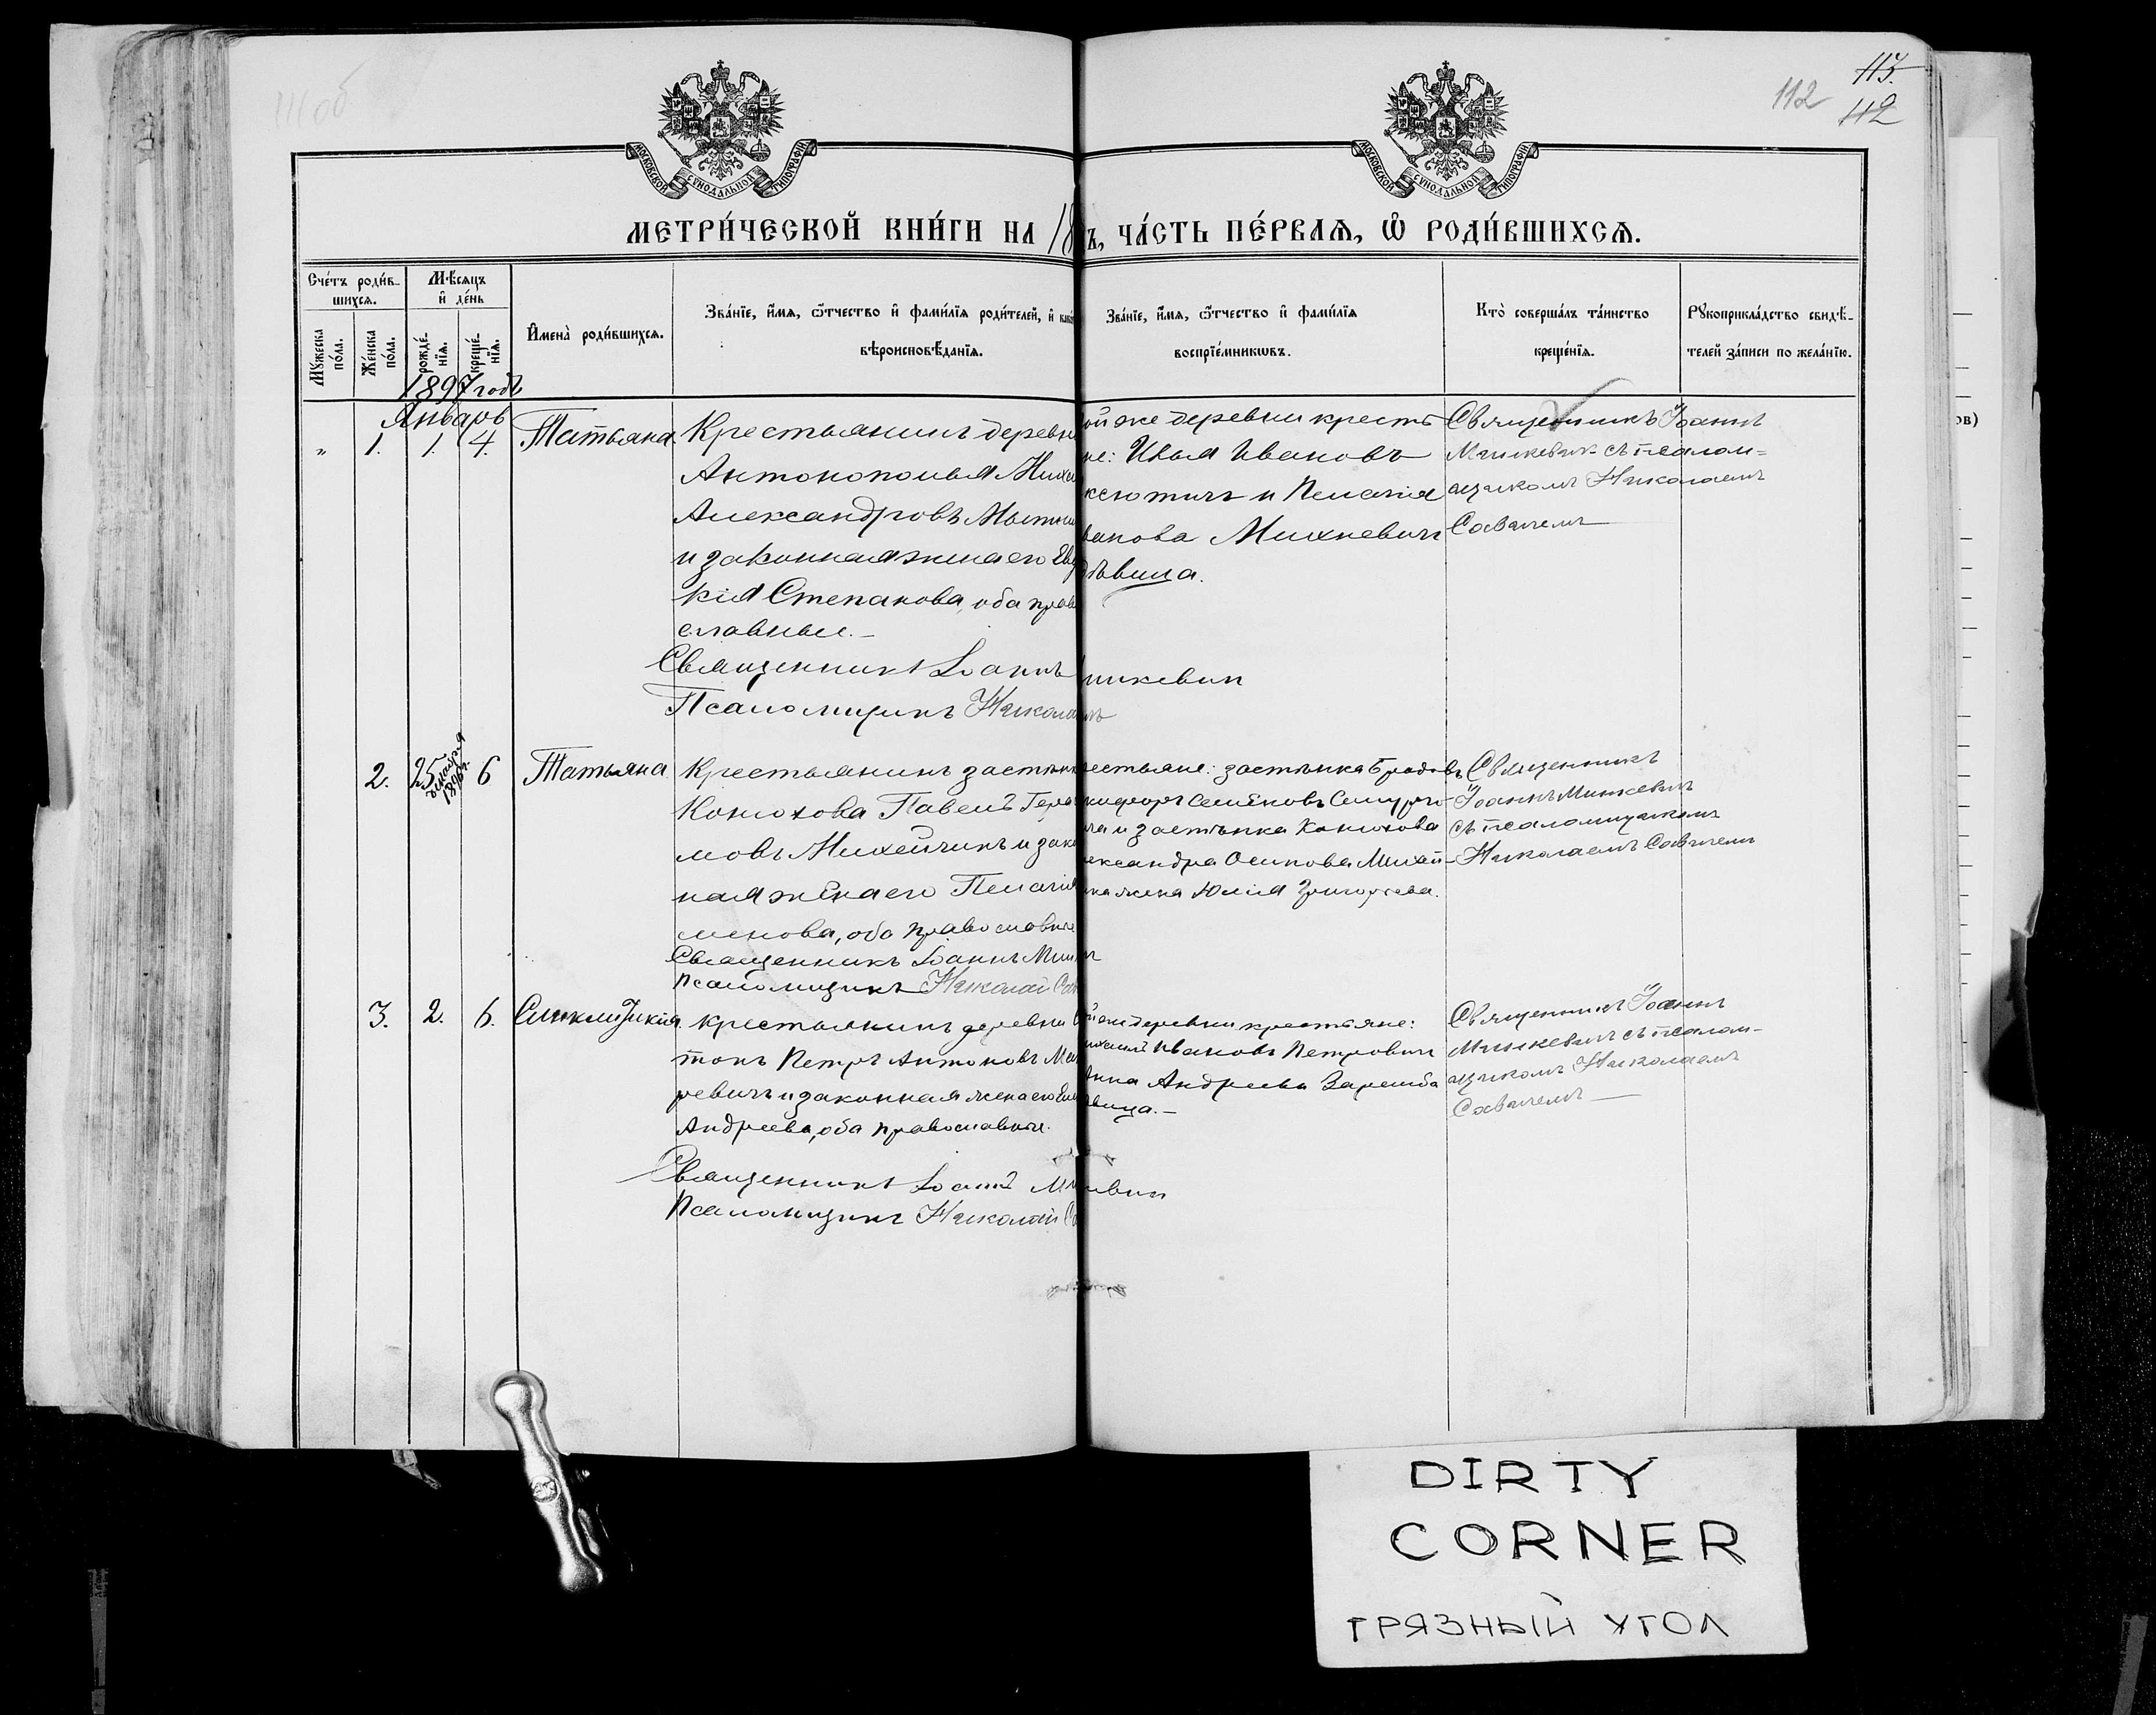 111 об
112
113.
112
МОСКОВСКОЙ СѴНОДАЛЬНОЙ ТИПОГРАФІИ
МОСКОВСКОЙ СѴНОДАЛЬНОЙ ТИПОГРАФІИ
МЕТРИ́ЧЕСКОЙ КНИ́ГИ НА 18
Ъ, ЧА́СТЬ ПЕ́РВАѦ, Ѡ҆ РОДИ́ВШИХСѦ.
Сче́тъ роди́в-
шихсѧ.
Мꙋ́жеска по́ла.
Же́нска по́ла.
Мѣ́сѧцъ
и҆ де́нь
рожде́нїѧ.
креще́нїѧ.
И҆мена̀ роди́вшихсѧ.
Зва́нїе, и҆́мѧ, ѻ҆́тчество и҆ фами́лїѧ роди́телей, и҆
вѣроисповѣ́данїѧ.
Зва́нїе, и҆́мѧ, ѻ҆́тчество и҆ фами́лїѧ
воспрїе́мникѡвъ.
Кто̀ соверша́лъ та́инство
креще́нїѧ.
Рꙋкоприкла́дство свидѣ́-
телей за́писи по жела́нїю.
1897 годъ
Январь
„ 1. 1. 4. Татьяна
Крестьянинъ дерев
Антонополья Мих
Александровъ
и законная жена его Ев
кія Степанова, оба прав
славные.–
Священникъ Іоаннъ
Псаломщикъ Никола
ой же деревни кресть
не: Илья Ивановъ
ксютичъ и Пелагія
ванова Михневичъ
дѣвица.
шкевич
Священникъ Іоаннъ
Мишкевичъ съ псалом=
щикомъ Николаемъ
Савичемъ
2. 25 декабря 1896 г. 6 Татьяна
Крестьянинъ застѣнк
Конюхова Павелъ Гера
мовъ Михейчикъ и зако
ная жена его Пелагія
менова, оба православные
Священникъ Іоаннъ Миш
Псаломщикъ Николай Сав
рестьяне: застѣнка Бродовъ
Семёновъ
ча и застѣнка Конюхова
лександра Осипова Михей-
ка жена Юлія Григорьева.
Священникъ
Іоаннъ Мишкевичъ
съ псаломщикомъ
Николаемъ Савичемъ
3. 2. 6. Синклитикія
крестьянинъ деревни
тонъ Петръ Антоновъ Ма
ревичъ и законная жена его
Андреева, оба православные.
Священникъ Іоаннъ М
Псаломщикъ Николай Са
й же деревни крестьяне:
Ивановъ Петровичъ
Анна Андреева Заремба
вица.–
Священникъ Іоаннъ
Мишкевичъ съ псалом-
щикомъ Николаемъ
Савичемъ
ов)
DIRTY
CORNER
ГРЯЗНЫЙ УГОЛ